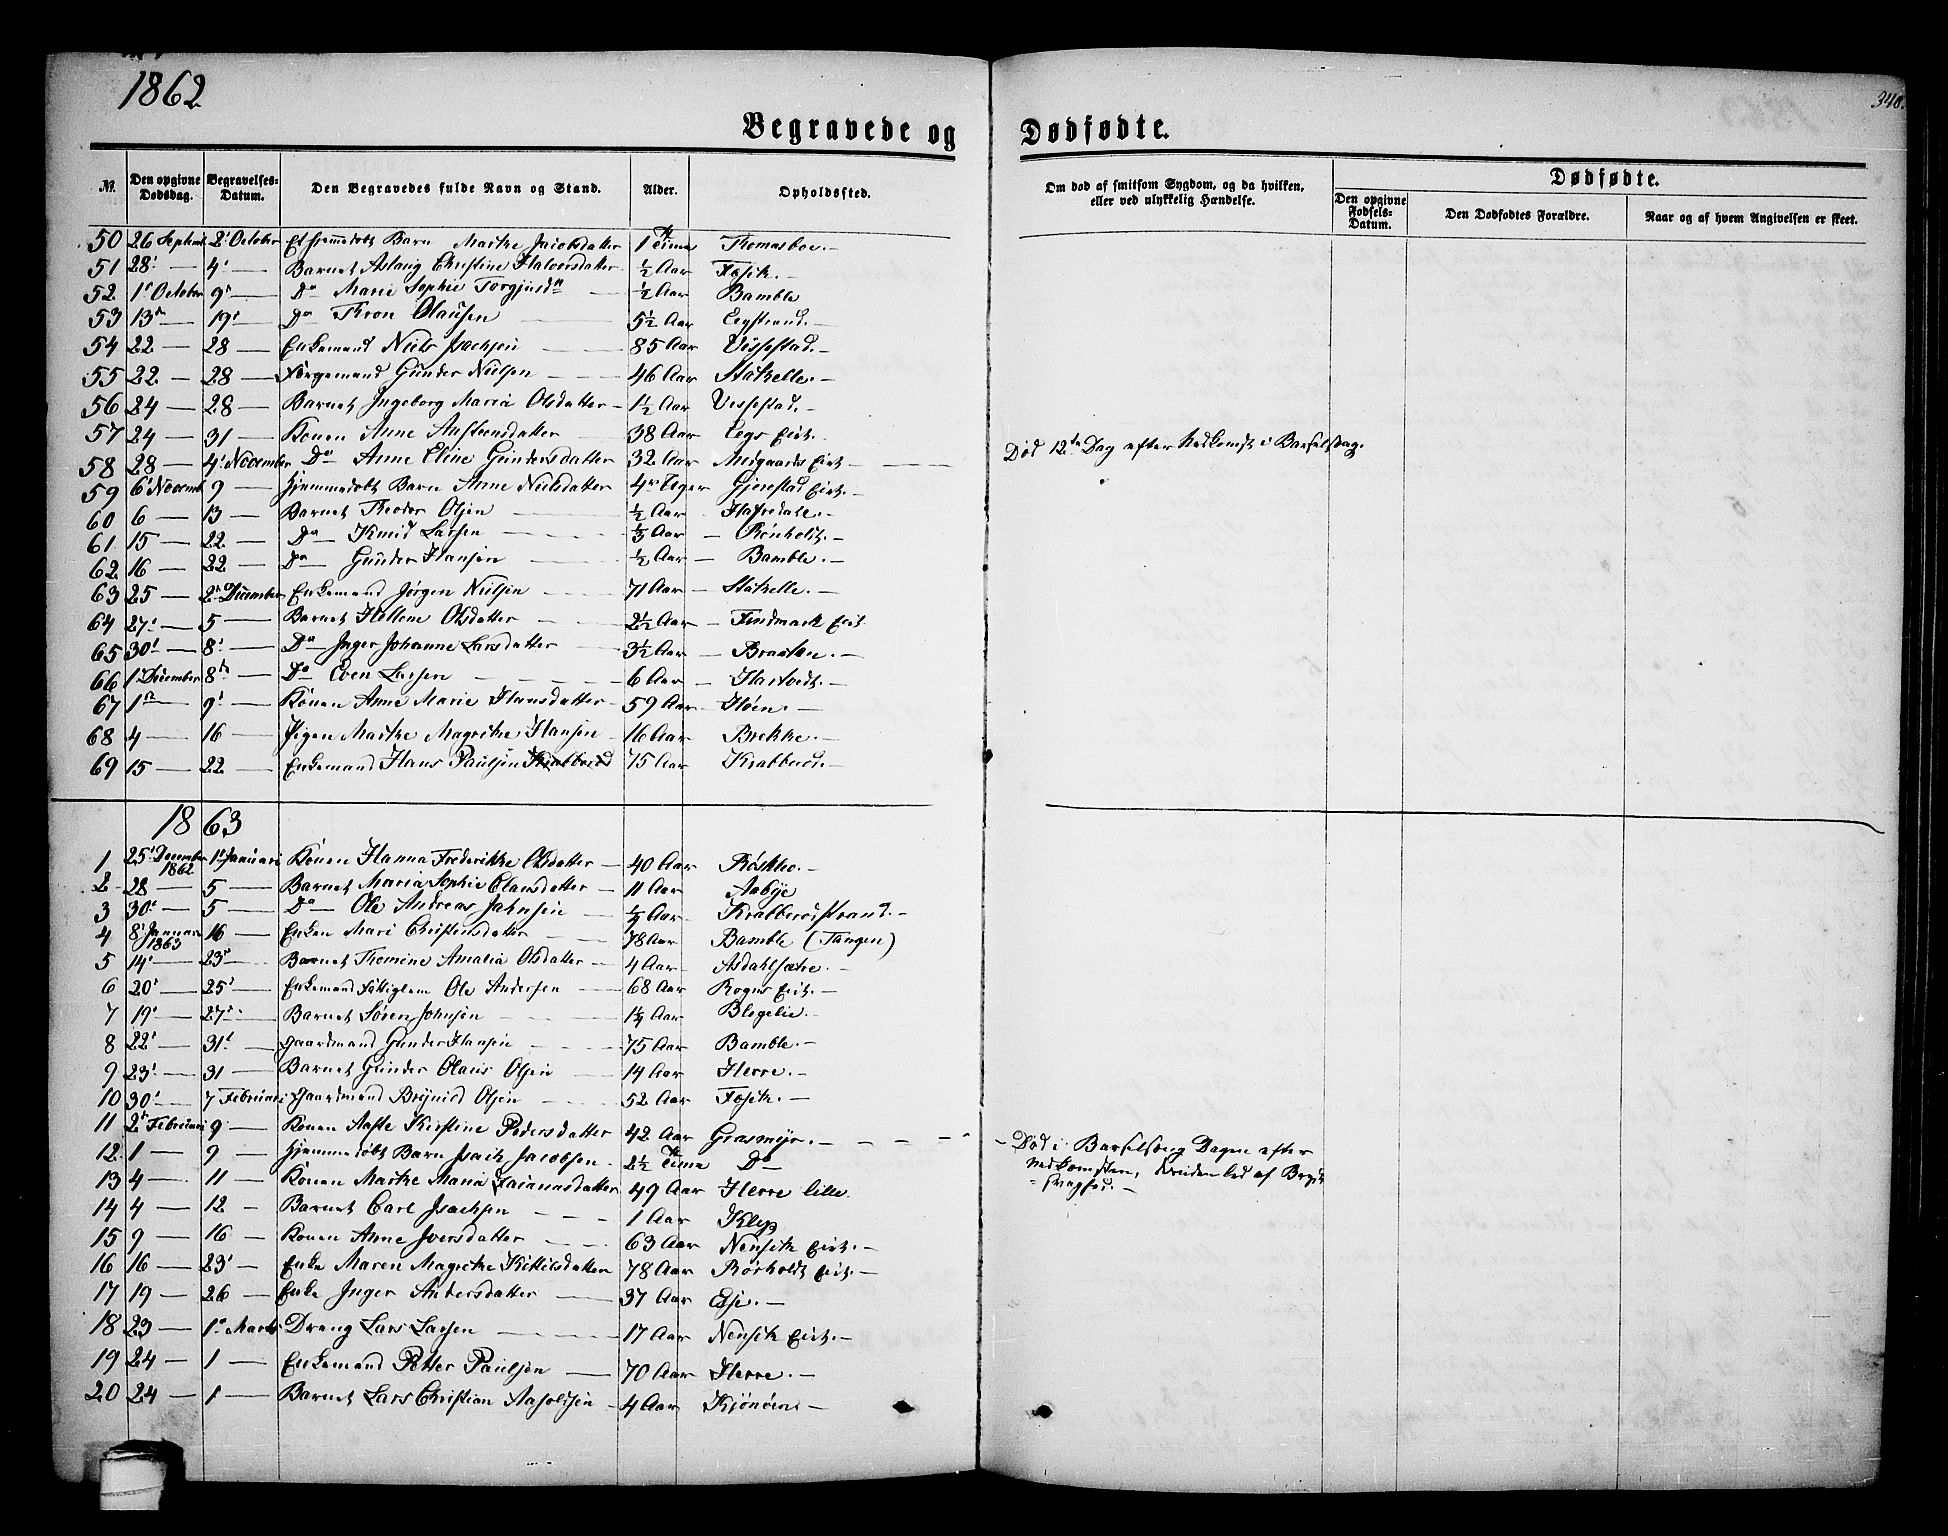 1862
340.
Begravede og Dødfødte.
No.
Den opgivne Dødsdag.
Begravelses-Datum.
Den Begravedes fulde Navn og Stand.
Alder.
Opholdssted.
Om død af smitsom Sygdom, og da hvilken, eller ved ulykkelig Hændelse.
Dødfødte.
Den opgivne Fødsels-Datum.
Den Dødfødtes Forældre.
Naar og af hvem Angivelsen er skeet.
50 26 Septembr 2' October Et hjemmedøbt Barn Marthe Jacobsdatter 1 Time Thomasboe.
51 28' — 4' — Barnet Aslaug Christine Halvorsdatter ½ Aar Fosik.
52 1' October 9' — Do Marie Sophie Torgjusdr — ½ Aar Bamble
53 13' — 19' — Do Thron Olausen — 5½ Aar Eegstrand.
54 22 — 28 — Enkemand Niels Isachsen — 85 Aar Vissestad.
55 22 — 28 — Gunder Nielsen — 46 Aar Stathelle.
56 24 — 28 — Barnet Ingeborg Maria Olsdatter 1½ Aar Vissestad.
57 24 — 31 — Konen Anne Aastensdatter 38 Aar Eegs Eiet.
58 28 — 4' November Do Anne Eline Gundersdatter 32 Aar Eiet — Død 12te Dag efter Nedkomst i Barselseng.
59 6' Novemb 9 — Hjemmedøbt Barn Anne Nielsdatter 4re Uger Gjerestad Eiet.
60 6 — 13 — Barnet Theodor Olsen — ½ Aar Hafredale.
61 15 — 22 — Do Knud Larsen — ⅓ Aar — Rønholdt.
62 16 — 22 — Do Gunder Hansen — ½ Aar — Bamble.
63 25 — 2' December Enkemand Jørgen Nielsen — 71 Aar — Stathelle.
64 27' — 5 — Barnet Hellene Olsdatter — 2½ Aar — Findmark Eiet
65 30' — 8' — Do Inger Johanne Larsdatter 3½ Aar — Braaten.
66 1 December 8de Do Even Larsen — 6 Aar — Hastvedt.
67 1ste — 9' — Konen Anne Marie Hansdatter 59 Aar — Høen.
68 4 — 16 — Pigen Marthe Magrethe Hansen — 16 Aar Brekke.
69 15 — 22 — Enkemand Hans Paulsen Krabberød 75 Aar Krabberød.
1863
1 25' December 1862 1' Januari Konen Hanna Frederikke Olsdatter — 40 Aar
2 28 — 5 — Barnet Maria Sophie Olausdatter 11 Aar Aabye
3 30' — 5 — Do Ole Andreas Jahnsen — ¼ Aar Krabberødstrand.
4 8' Januar 1863 16 — Enken Mari Christensdatter — 78 Aar Bamble (Tangen)
5 14' — 23' — Barnet Thomine Amalia Olsdatter — 4 Aar Asdahlsætre.
6 20' — 25' — Enkemand Fattiglem Ole Andersen — 68 Aar Rogns Eiet.
7 19' — 27' — Barnet Søren Johnsen — 1¼ Aar Blegelie.
8 22' — 31' — Gaardmand Gunder Hansen — 75 Aar Bamble.
9 23' — 31 — Barnet Gunder Olaus Olsen — 14 Aar Herre.
10 30' — 7 Februari Gaardmand Brynild Olsen — 52 Aar Fosik.
11 2' Februari 9 — Konen Aaste Kirstine Pedersdatter 42 Aar Grasmyr. — Død i Barselseng Dagen efter
12 1 — 9 — Hjemmedøbt Barn Isach Jacobsen 2½ Time Do Nedkomsten, desuden led af Bryst-
svaghed.
13 4 — 11 — Konen Marthe Maria Zakariasdatter 49 Aar Herre lille.
14 4 — 12 — Barnet Carl Isachsen — 1 Aar Klep
15 9 — 16 — Konen Anne Iversdatter — 63 Aar Nensik Eiet.
16 16 — 23' — Enke Maren Magrethe Kittilsdatter 78 Aar Rørholdt Eiet.
17 19 — 26 — Enke Inger Andersdatter — 37 Aar
18 23 — 1' Marts Dreng Lars Larsen — 17 Aar Nensik Eiet.
19 24 — 1 — Enkemand Petter Paulsen — 70 Aar Herre.
20 24 — 1 — Barnet Lars Christian Aasoldsen — 4 Aar Kjønøen